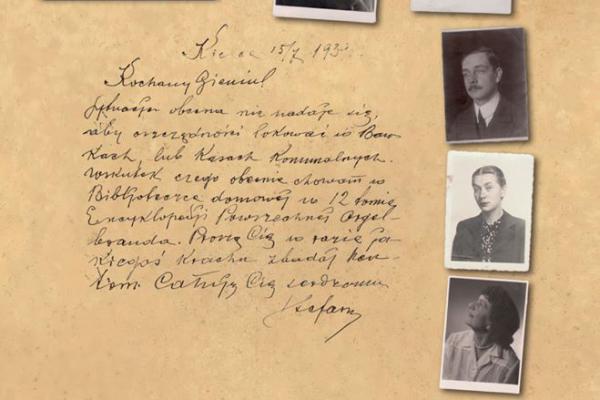 Kielce 15/7 193
Kochany Gieniu!
Sytuacja obecna nie nadaje się,
aby oszczędności lokować w Ban-
kach, lub Kasach Komunalnych.
wskutek czego obecnie chowam w
Biblioteczce domowej w 12 tomie
Encyklopedji Powszechnej Orgel-
branda. Proszę Cię w razie ja-
kiegoś krachu zbadaj
tom Całuję Cię serdecznie
Stefan